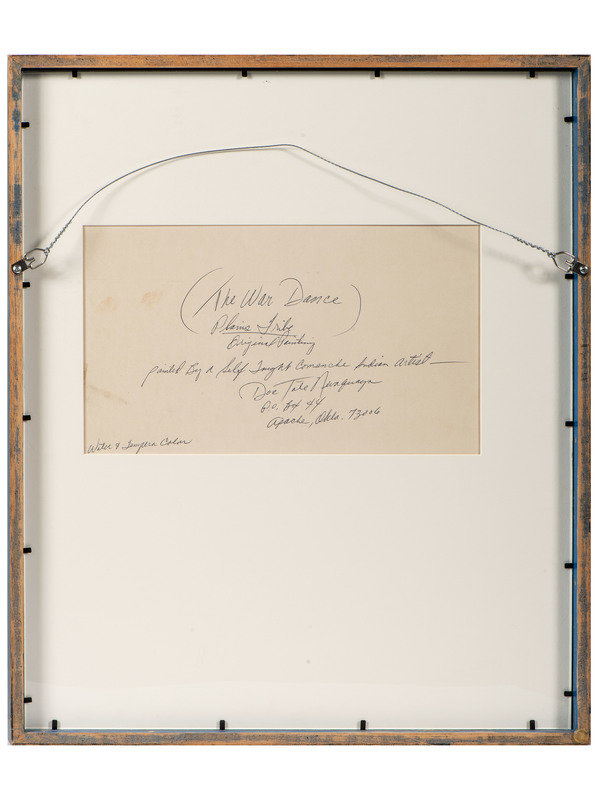 (The War Dance)
Plains Tribe
Original Painting
painted By a Self Taught Comanche Indian Artist—
Doc Tate Nevaquaya
P.O. BX 44
Apache, Okla. 73006
Water & Tempera Color